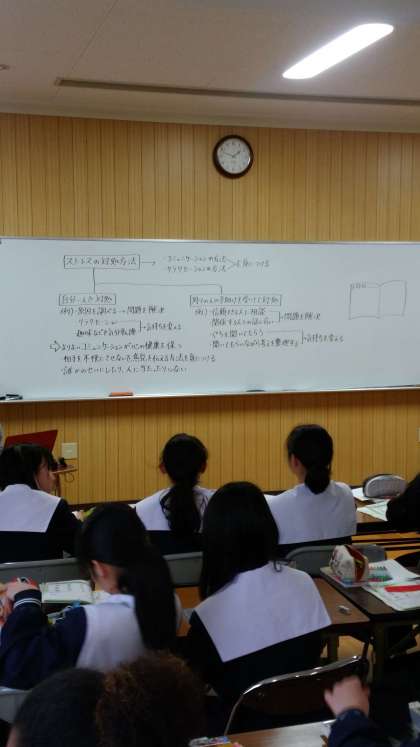 ストレスの対処方法 → ・コミュニケーションの方法
・リラクセーションの方法 を身につける
自分一人で対処
例)・原因を調べる→問題を解決
リラクセーション
趣味などで気分転換 →気持ちを変える
よりよいコミュニケーションが心の健康を保つ
・相手を不快にさせないで意見を伝える方法を身につける
・誰かのせいにしたり、人に当たったりしない
周りの人の手助けを受けて対処
例)・信頼できる人に相談
→問題を解決
・ぐちを聞いてもらう
・聞いてもらいながら考えを整理する →気持ちを変える